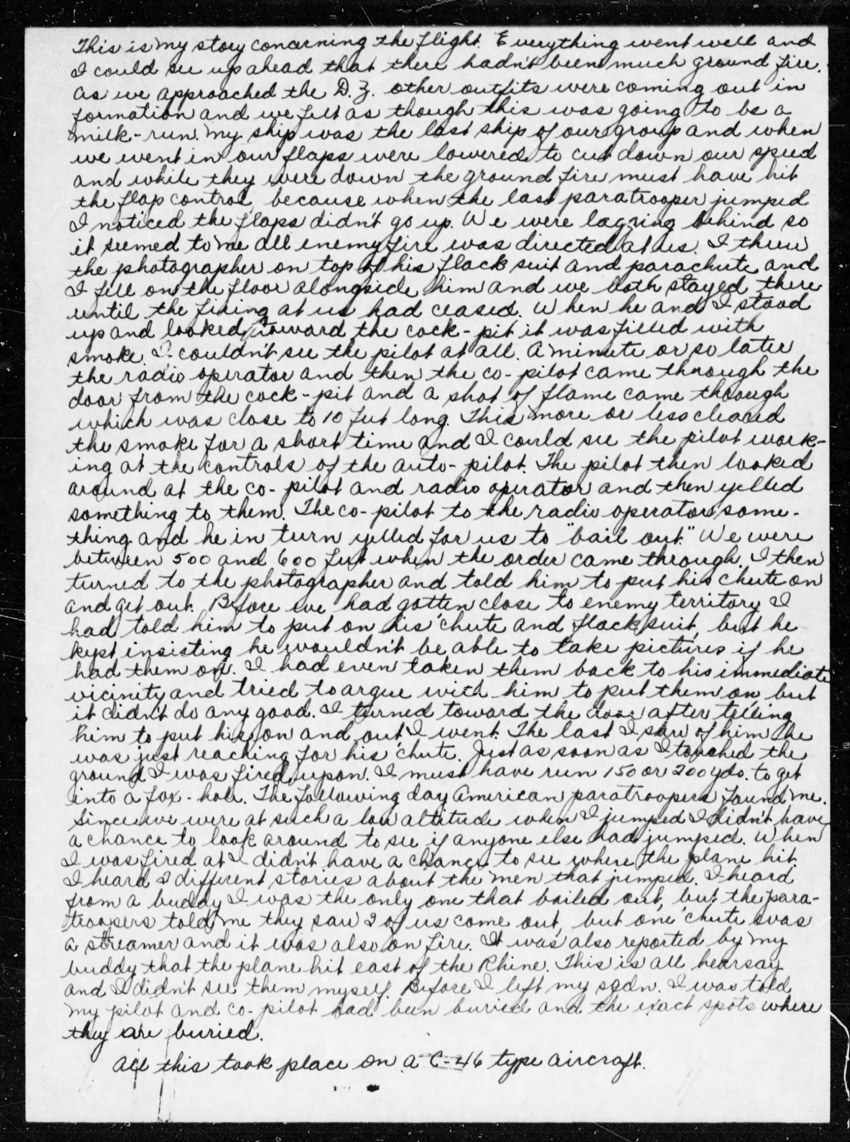 This is my story concerning the flight. Everything went well and
I could see up ahead that there hadn't been much ground fire.
As we approached the D.Z. other outfits were coming out in
formation and we felt as though this was going to be a
milk-run. My ship was the last ship of our group and when
we went in our flaps were lowered to cut down our speed
and while they were down the ground fire must have hit
the flap control, because when the last paratrooper jumped
I noticed the flaps didn't go up. We were lagging behind so
it seemed to me all enemy fire was directed at us. I threw
the photographer on top of his flack suit and parachute and
I fell on the floor alongside him and we both stayed there
until the firing at us had ceased. When he and I stood
up and looked toward the cock-pit it was filled with
smoke. I couldn't see the pilot at all. A minute or so later
the radio operator and then the co-pilot came through the
door from the cock-pit and a shot of flame came through
which was close to 10 feet long. This more or less cleared
the smoke for a short time and I could see the pilot work-
ing at the controls of the auto-pilot. The pilot then looked
around at the co-pilot and radio operator and then yelled
something to them. The co-pilot to the radio operator some-
thing and he in turn yelled for us to "bail out." We were
between 500 and 600 feet when the order came through. I then
turned to the photographer and told him to put his chute on
and get out. Before we had gotten close to enemy territory I
had told him to put on his 'chute and flack suit, but he
kept insisting he wouldn't be able to take pictures if he
had them on. I had even taken them back to his immediate
vicinity and tried to argue with him to put them on but
it didn't do any good. I turned toward the door after telling
him to put his on and out I went. The last I saw of him he
was just reaching for his 'chute. Just as soon as I touched the
ground I was fired upon. I must have run 150 or 200 yds. to get
into a fox-hole. The following day American paratroopers found me.
Since we were at such a low altitude when I jumped I didn't have
a chance to look around to see if anyone else had jumped. When
I was fired at I didn't have a chance to see where the plane hit.
I heard 2 different stories about the men that jumped. I heard
from a buddy I was the only one that bailed out, but the para-
troopers told me they saw 2 of us come out, but one 'chute was
a streamer and it was also on fire. It was also reported by my
buddy that the plane hit east of the Rhine. This is all hearsay
and I didn't see them myself. Before I left my sqdn. I was told
my pilot and co-pilot had been buried and the exact spots where
they are buried.
All this took place on a C-46 type aircraft.